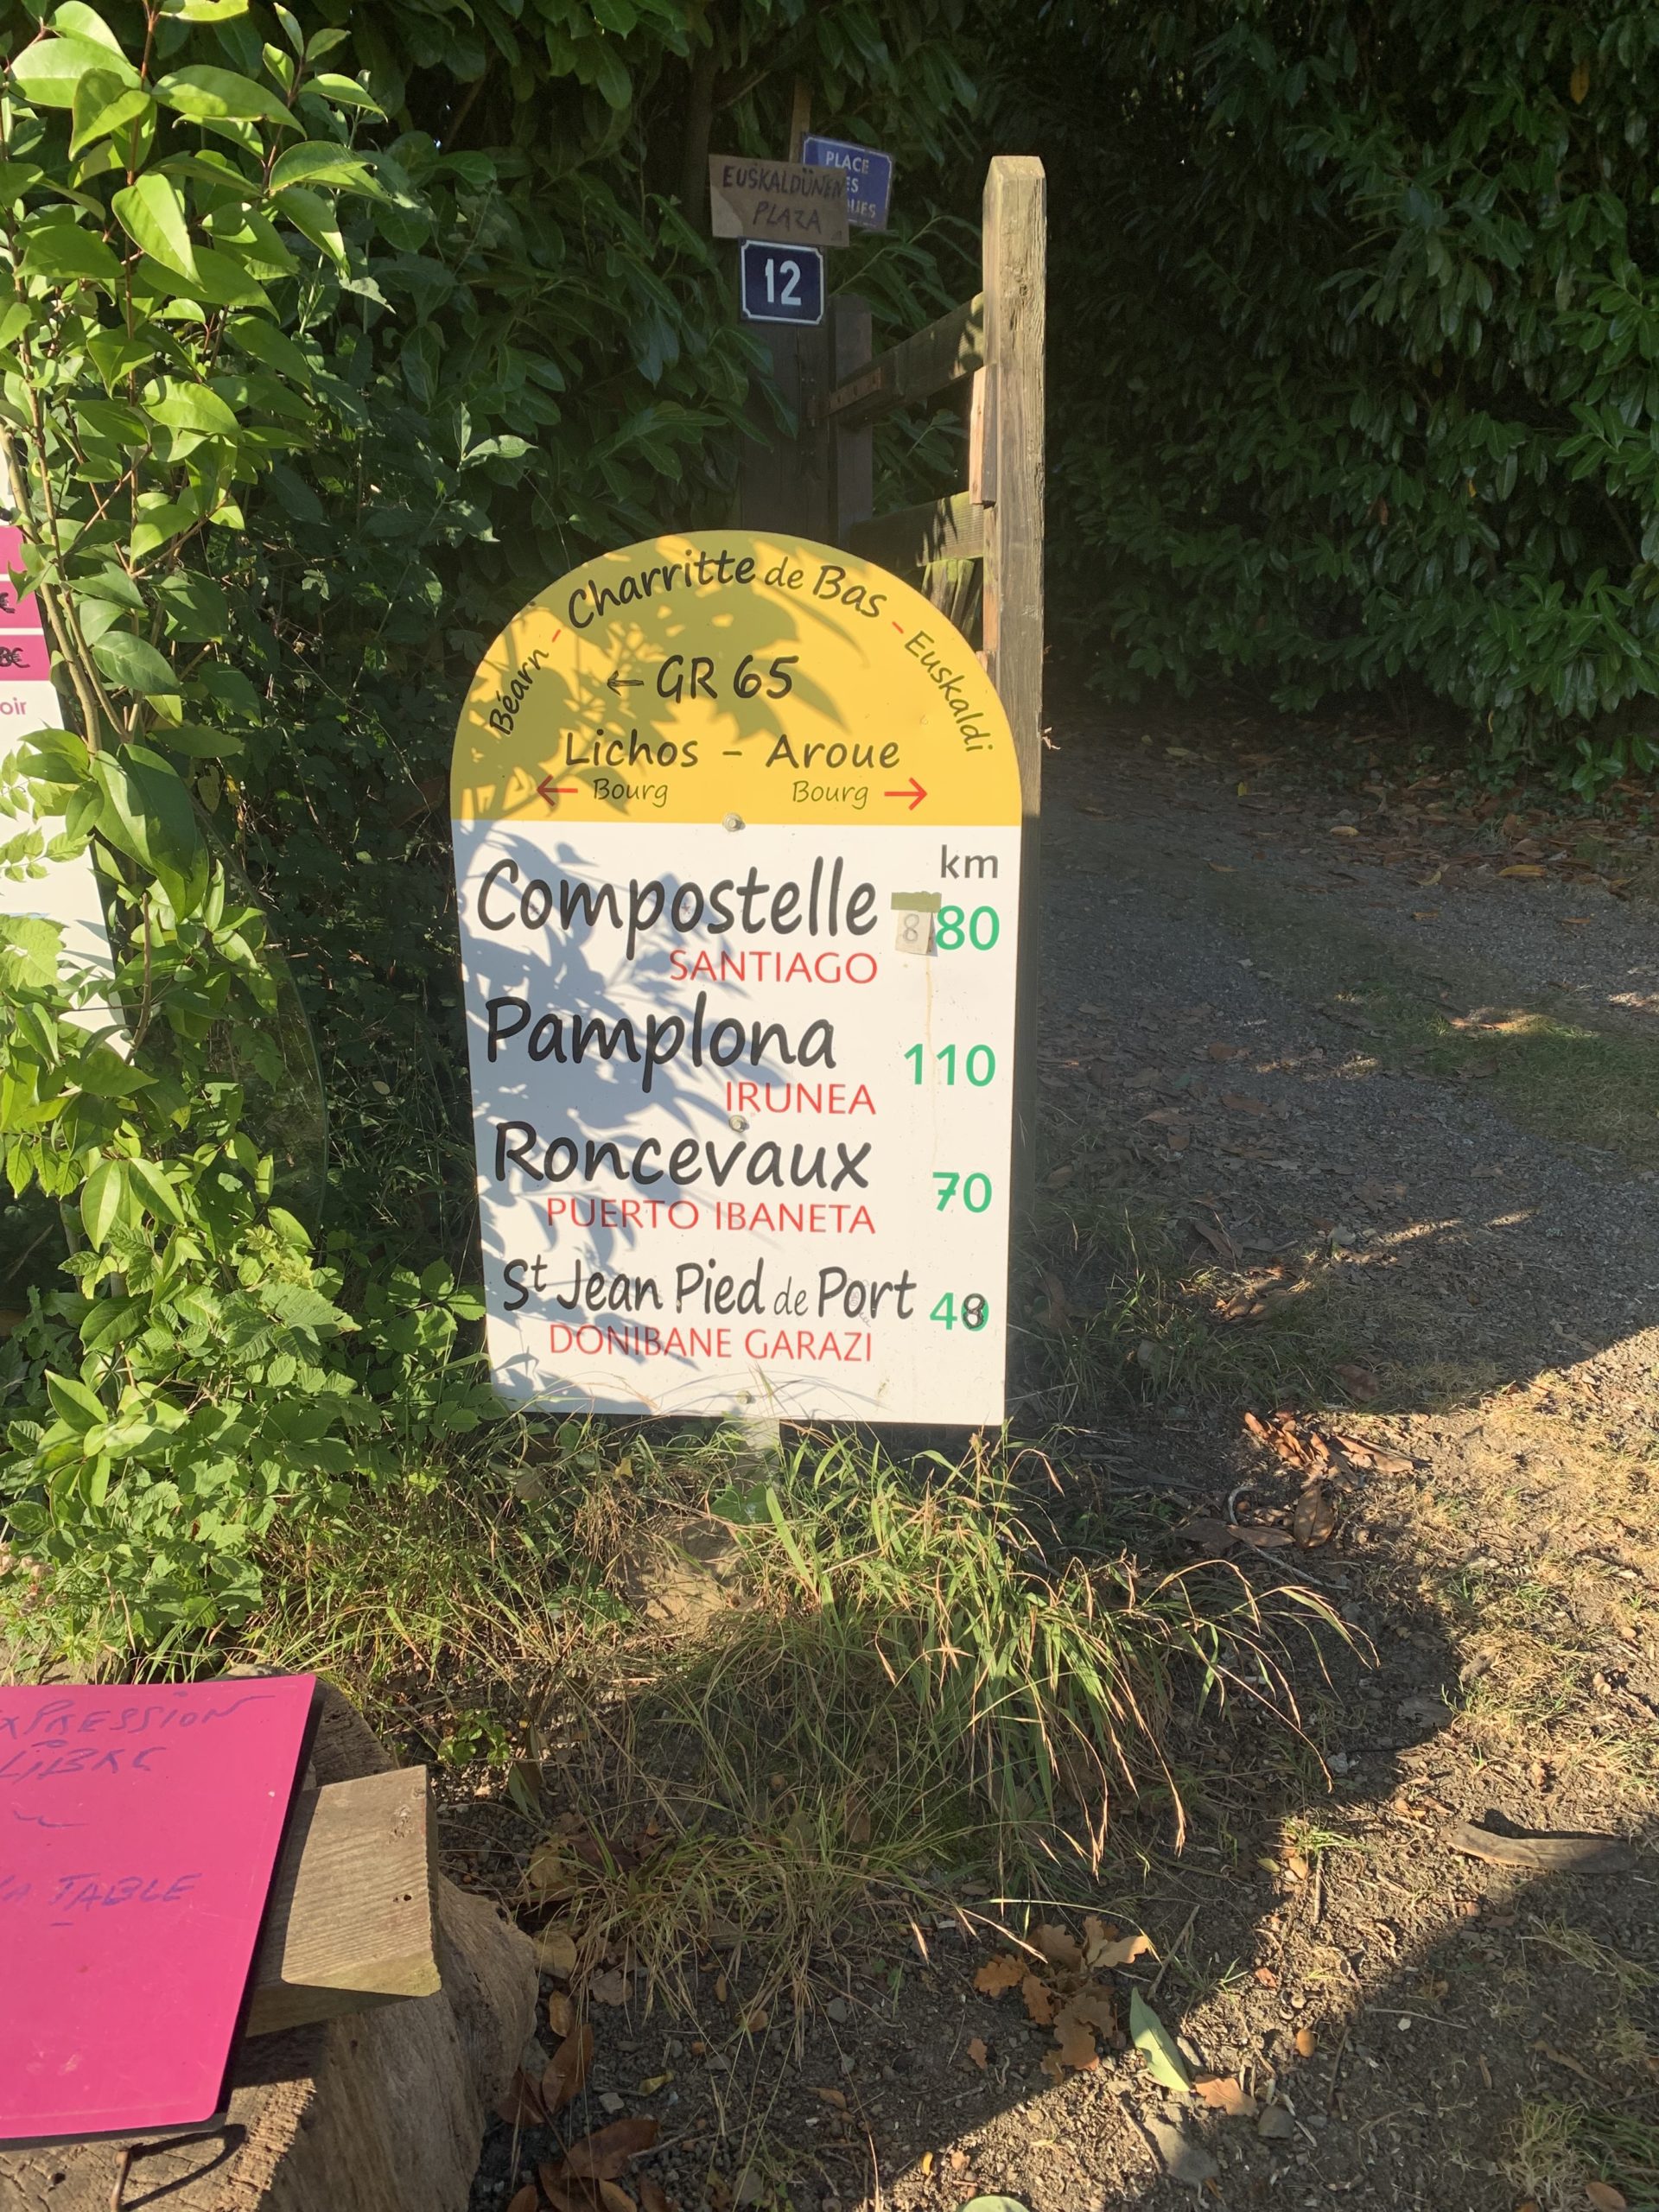 PLACE
EUSKALDÜNEN
PLAZA
12
Béarn - Charritte de Bas - Euskaldi
← GR 65
Lichos - Aroue
← Bourg Bourg →
km
Compostelle 880
SANTIAGO
Pamplona 110
IRUNEA
Roncevaux 70
PUERTO IBANETA
St Jean Pied de Port 48
DONIBANE GARAZI
€
8€
oir
XPRESSION
LIBRE
TABLE